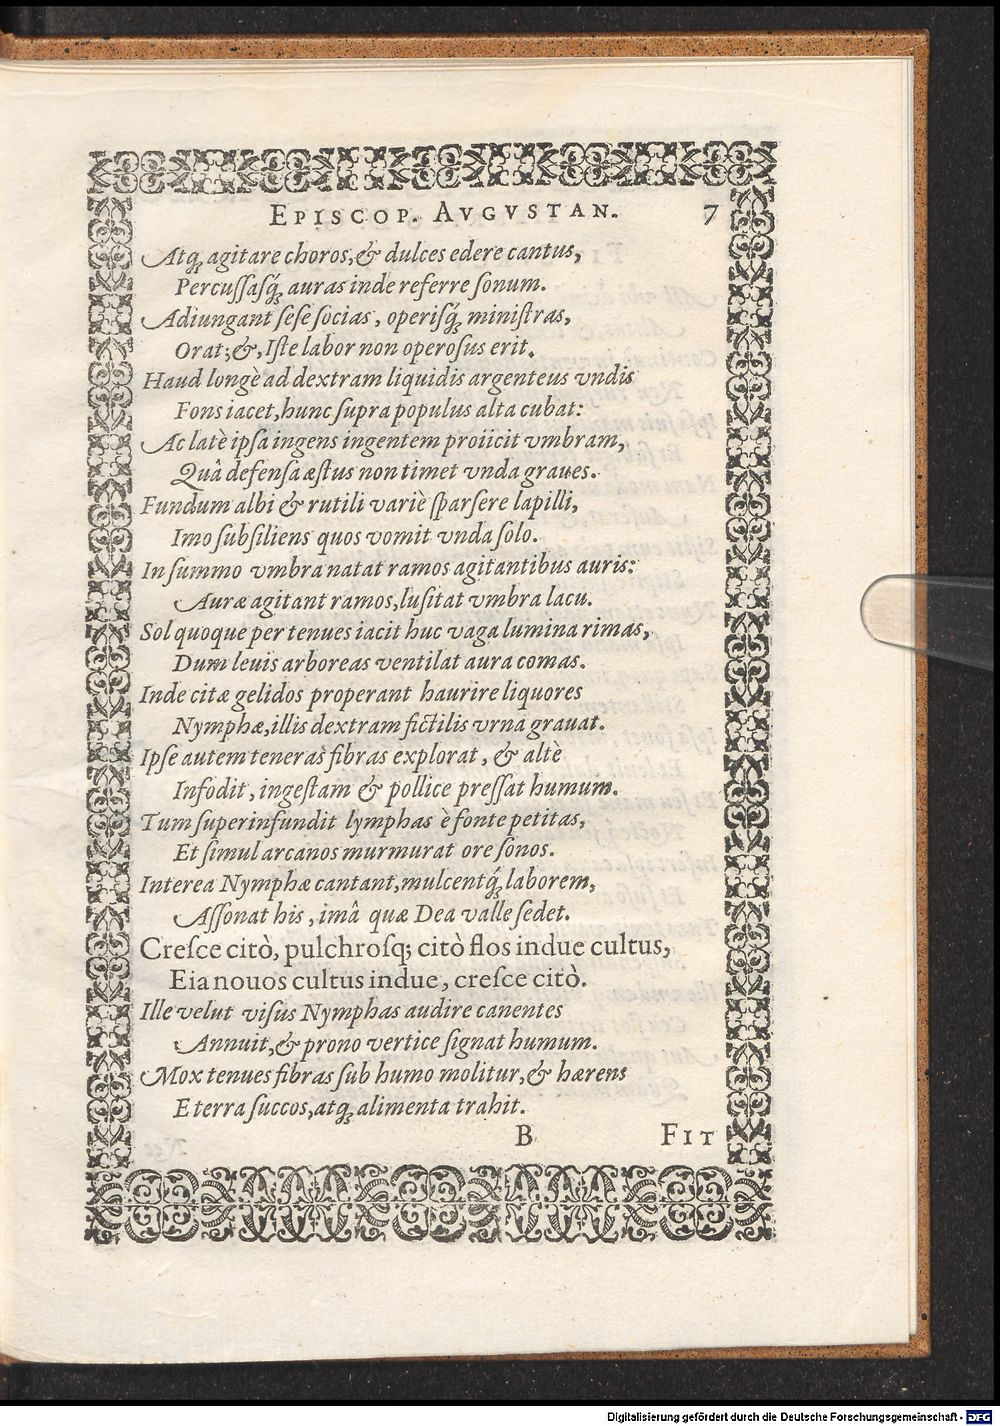 EPISCOP. AVGVSTAN. 7
Atq́ agitare choros, & dulces edere cantus,
Percuſſaſq́ auras inde referre ſonum.
Adiungant ſeſe ſocias, operiſq́ miniſtras,
Orat; &, Iſte labor non operoſus erit.
Haud longè ad dextram liquidis argenteus vndis
Fons iacet, hunc ſupra populus alta cubat:
Ac latè ipſa ingens ingentem proiicit vmbram,
Quâ defenſa æſtus non timet vnda graues.
Fundum albi & rutili variè ſparſere lapilli,
Imo ſubſiliens quos vomit vnda ſolo.
In ſummo vmbra natat ramos agitantibus auris:
Auræ agitant ramos, luſitat vmbra lacu.
Sol quoque per tenues iacit huc vaga lumina rimas,
Dum leuis arboreas ventilat aura comas.
Inde citæ gelidos properant haurire liquores
Nymphæ, illis dextram fictilis vrna grauat.
Ipſe autem teneras fibras explorat, & altè
Infodit, ingeſtam & pollice preſſat humum.
Tum ſuperinfundit lymphas è fonte petitas,
Et ſimul arcanos murmurat ore ſonos.
Interea Nymphæ cantant, mulcentq́ laborem,
Aſſonat his, imâ quæ Dea valle ſedet.
Creſce citò, pulchroſq; citò flos indue cultus,
Eia nouos cultus indue, creſce citò.
Ille velut viſus Nymphas audire canentes
Annuit, & prono vertice ſignat humum.
Mox tenues fibras ſub humo molitur, & hærens
E terra ſuccos, atq́ alimenta trahit.
B FIT
Digitalisierung gefördert durch die Deutsche Forschungsgemeinschaft - DFG